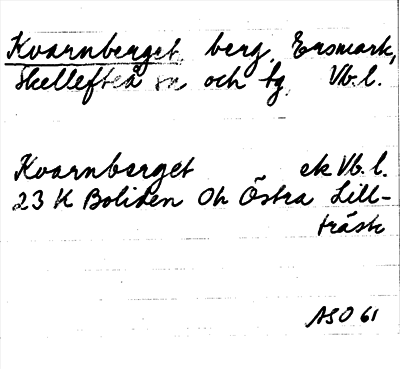 Kvarnberget, berg, Ersmark,
Skellefteå sn och tg, Vb.l.
Kvarnberget ek Vb. l.
23 K Boliden Oh Östra Lill-
träsk
ASO 61